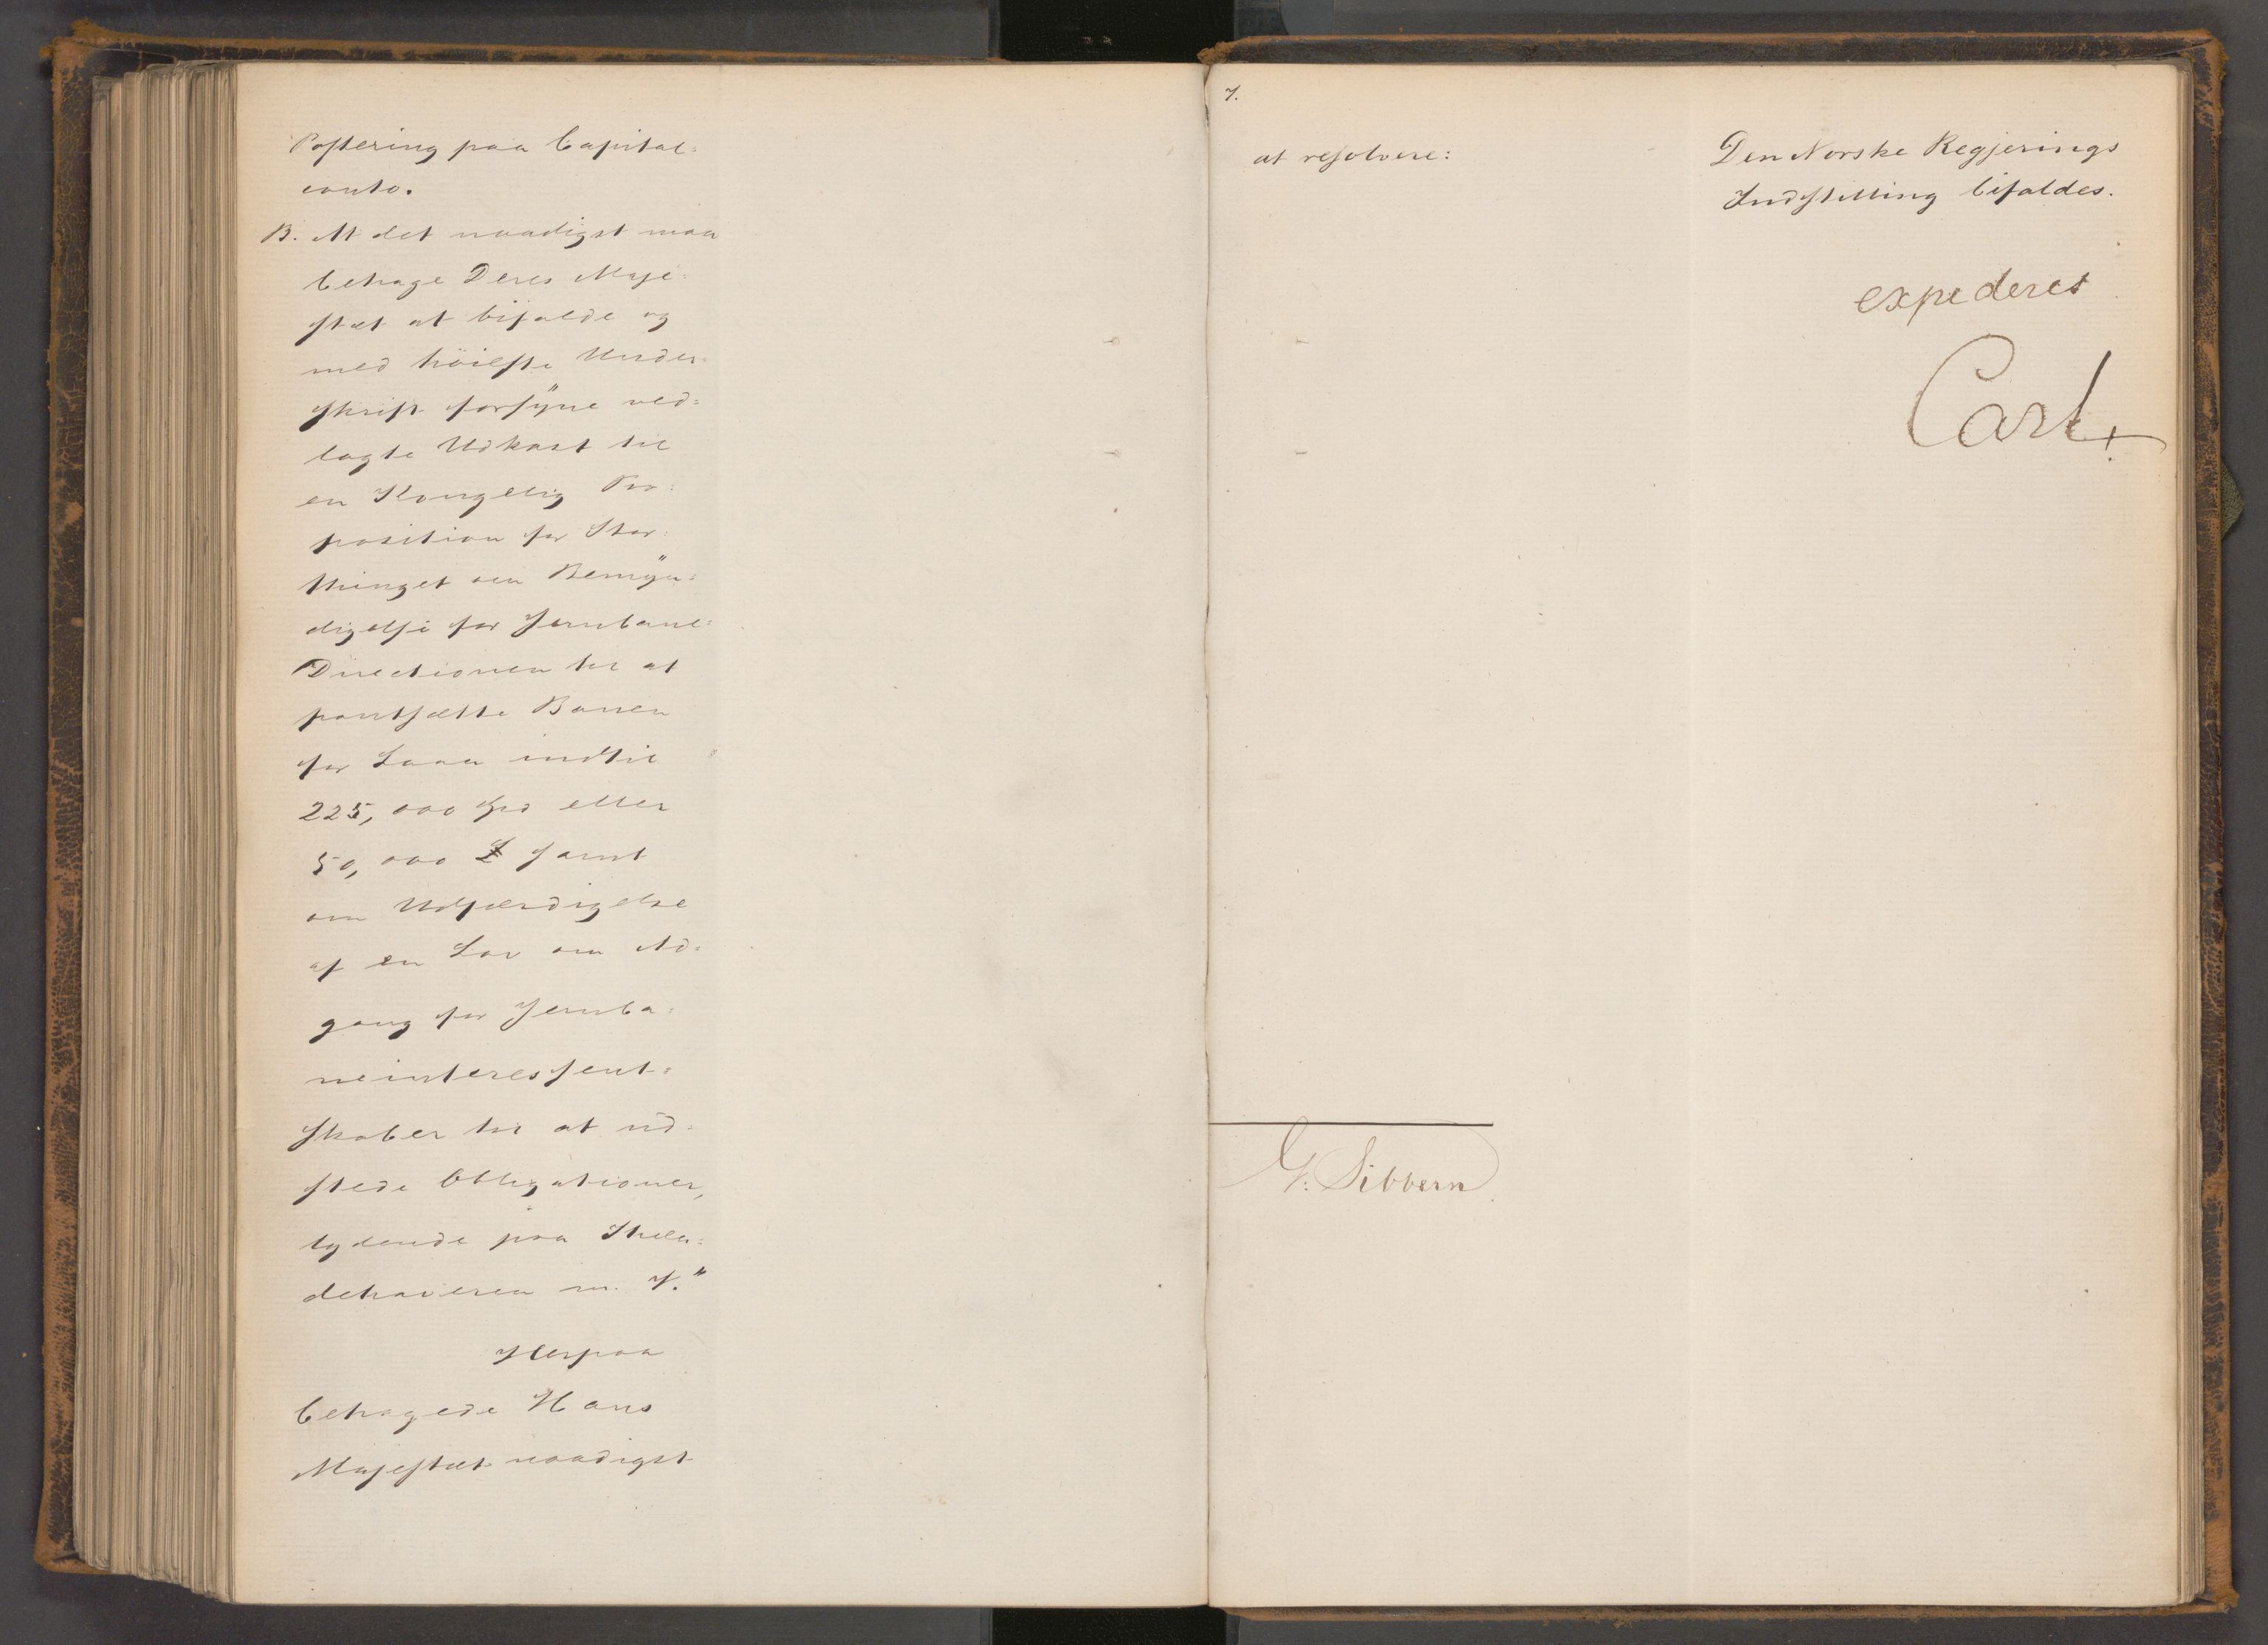 Postering paa Capital=
conto.
B. At det naadigst maa
behage Deres Maje=
stæt at bifalde og
med höieste Under=
skrift forsÿne ved=
lagte Udkast til
en Kongelig Pro=
position for Stor=
thinget om Bemÿn=
digelse for Jernbane=
Directionen til at
pantsætte Banen
for Laan indtil
225,000 Spd eller
50,000 £ samt
om Udfærdigelse
af en Lov om Ad=
gang for Jernba=
neinteressent=
skaber til at ud=
stede Obligationer,
lydende paa Ihæn=
dehaveren m. V."
Herpaa
behagede Hans
Majestæt naadigst
7.
at resolvere:
G: Sibbern
Den Norske Regjerings
Indstilling bifaldes.
expederes
Carl